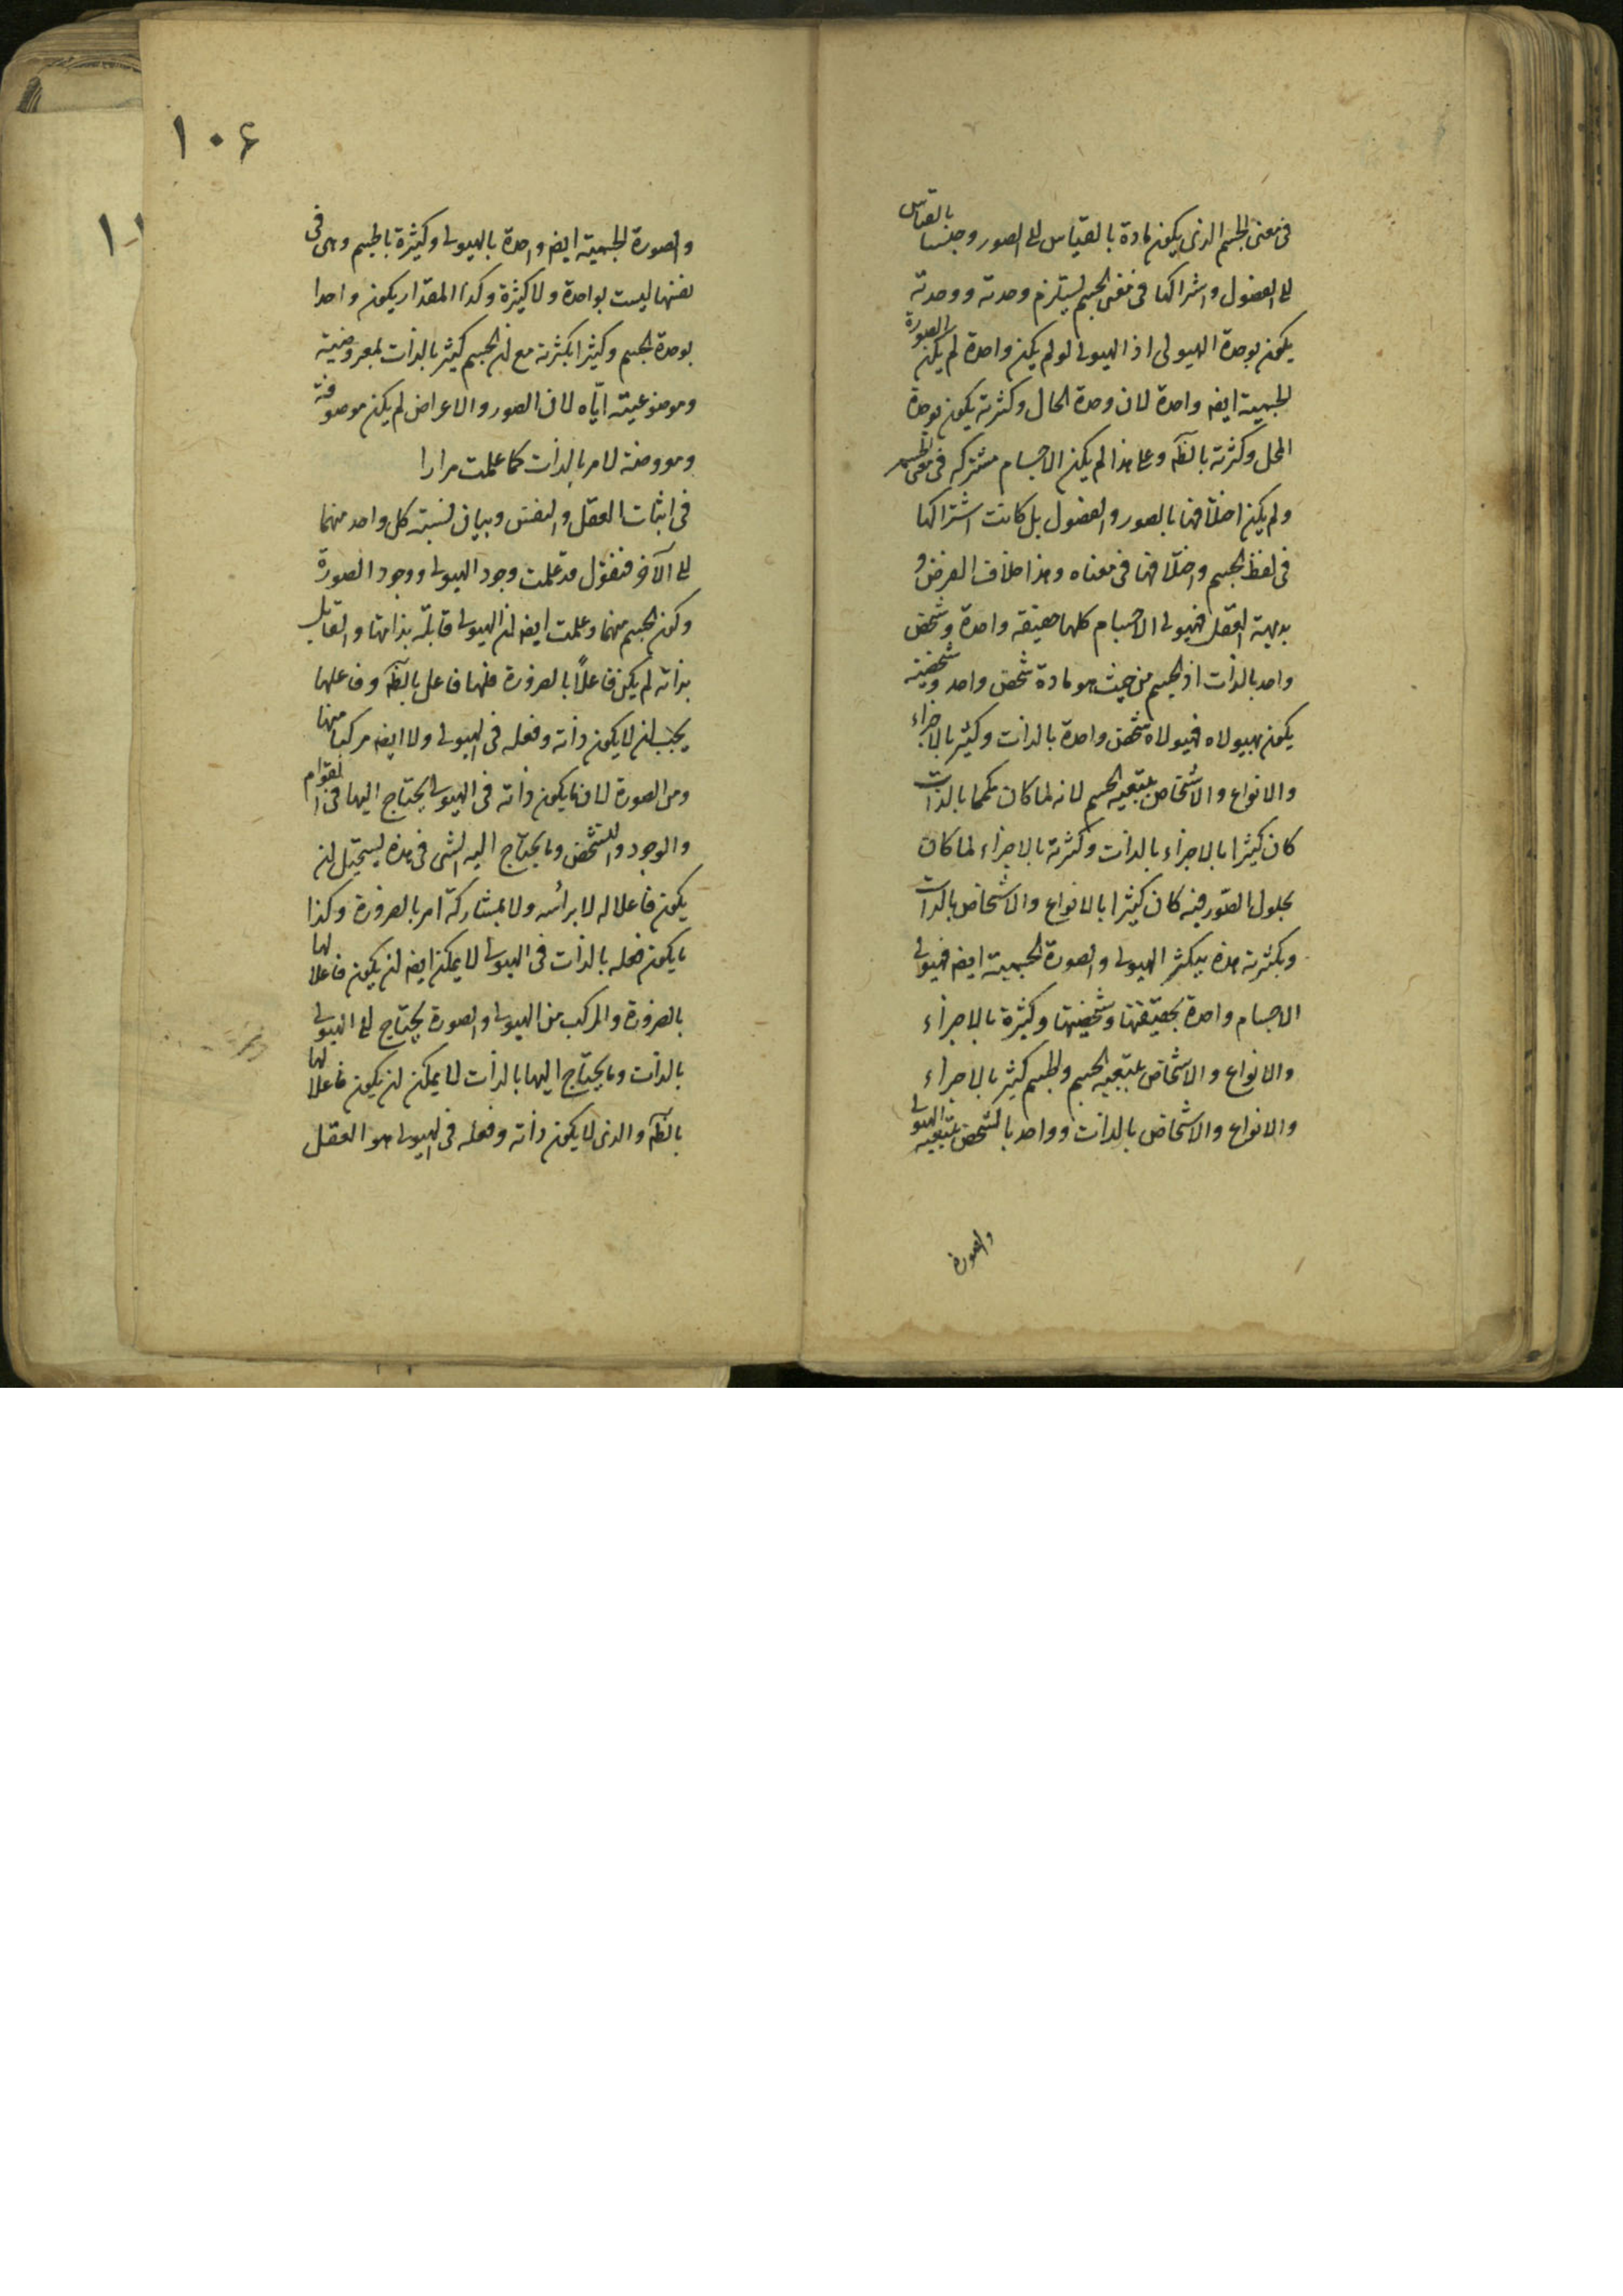 فى معنى الجسم الذى يكون مادة بالقياس الى الصور وجنسا بالقياس
الى الفصول واشتراكها فى معنى الجسم يستلزم وحدته ووحدته
يكون بوحدة الهيولى اذ الهيولى لو لم يكن واحدة لم يكن الصورة
الجسمية ايضا واحدة لان وحدة الحال وكثرته يكون بوحدة
المحل وكثرته بالضرورة وعلى هذا لم يكن الاجسام مشتركه فى معنى الجسم
ولم يكن اختلافها بالصور والفصول بل كانت اشتراكها
فى لفظ الجسم واختلافها فى معناه وهذا خلاف الفرض و
بديهة العقل فهيولى الاجسام كلها حقيقه واحدة وشخص
واحد بالذات اذ الجسم من حيث هو مادة شخص واحد وشخصيته
يكون بهيولاه فهيولاه شخص واحدة بالذات وكثير بالاجزاء
والانواع والاشخاص بتبعيه الجسم لانه لما كان كما بالذات
كان كثيرا بالاجزاء بالذات وكثرته بالاجزاء لما كان
بحلول الصور فيه كان كثيرا بالانواع والاشخاص بالذات
وبكثرته هذه يتكثر الهيولى والصورة الجسمية ايضا فهيولى
الاجسام واحدة بحقيقتها وشخصيتها وكثيرة بالاجزاء
والانواع والاشخاص بتبعيه الجسم والجسم كثير بالاجزاء
والانواع والاشخاص بالذات وواحد بالشخص بتبعيه الهيولى
والصورة
١٠۶
والصورة الجسمية ايضا واحدة بالهيولى وكثيرة بالجسم وهى فى
نفسها ليست بواحدة ولا كثيرة وكذا المقدار يكون واحدا
بوحدة الجسم وكثيرا بكثرته مع ان الجسم كثير بالذات لمعروضيته
وموضوعيته اياه لان الصور والاعراض لم يكن موصوفة
ومعروضة لامر بالذات كما علمت مرارا
فى اثبات العقل والنفس وبيان نسبة كل واحد منهما
الى الآخر فنقول قد علمت وجود الهيولى ووجود الصورة
وكون الجسم منهما وعلمت ايضا ان الهيولى قابلة بذاتها والقابل
بذاته لم يكن فاعلاً بالضرورة فلها فاعل بالضرورة وفاعلها
يجب ان لا يكون ذاته وفعله فى الهيولى ولا ايضا مركبا منها
ومن الصورة لان ما يكون ذاته فى الهيولى يحتاج اليها فى القوام
والوجود والتشخص وما يحتاج اليه الشى فى هذه يستحيل ان
يكون فاعلا له لا برأسه ولا بمشاركة امر بالضرورة وكذا
ما يكون فعله بالذات فى الهيولى لا يمكن ايضا ان يكون فاعلا لها
بالضرورة والمركب من الهيولى والصورة يحتاج الى الهيولى
بالذات وما يحتاج اليها بالذات لا يمكن ان يكون فاعلا لها
بالضرورة والذى لا يكون ذاته وفعله فى الهيولى هو العقل